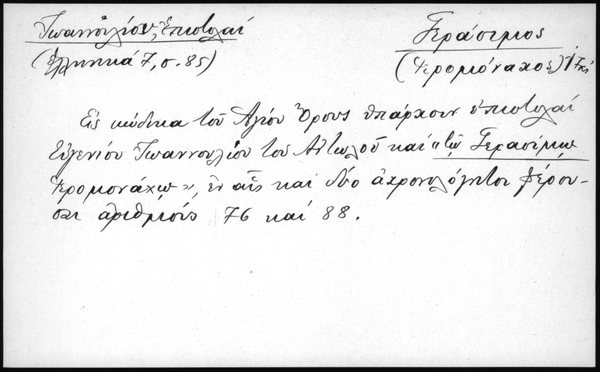 Ἰωαννουλίου, Ἐπιστολαί
(Ἑλληνικά 7, σ. 85)
Γεράσιμος
(Ἱερομόναχος)
Εἰς κώδικα τοῦ Ἁγίου Ὄρους ὑπάρχουν ἐπιστολαί
Εὐγενίου Ἰωαννουλίου τοῦ Αἰτωλοῦ καί "τῷ Γερασίμῳ
Ἱερομονάχῳ", ἐν αἷς καί δύο ἀχρονολόγητοι φέρου-
σαι ἀριθμούς 76 καί 88.